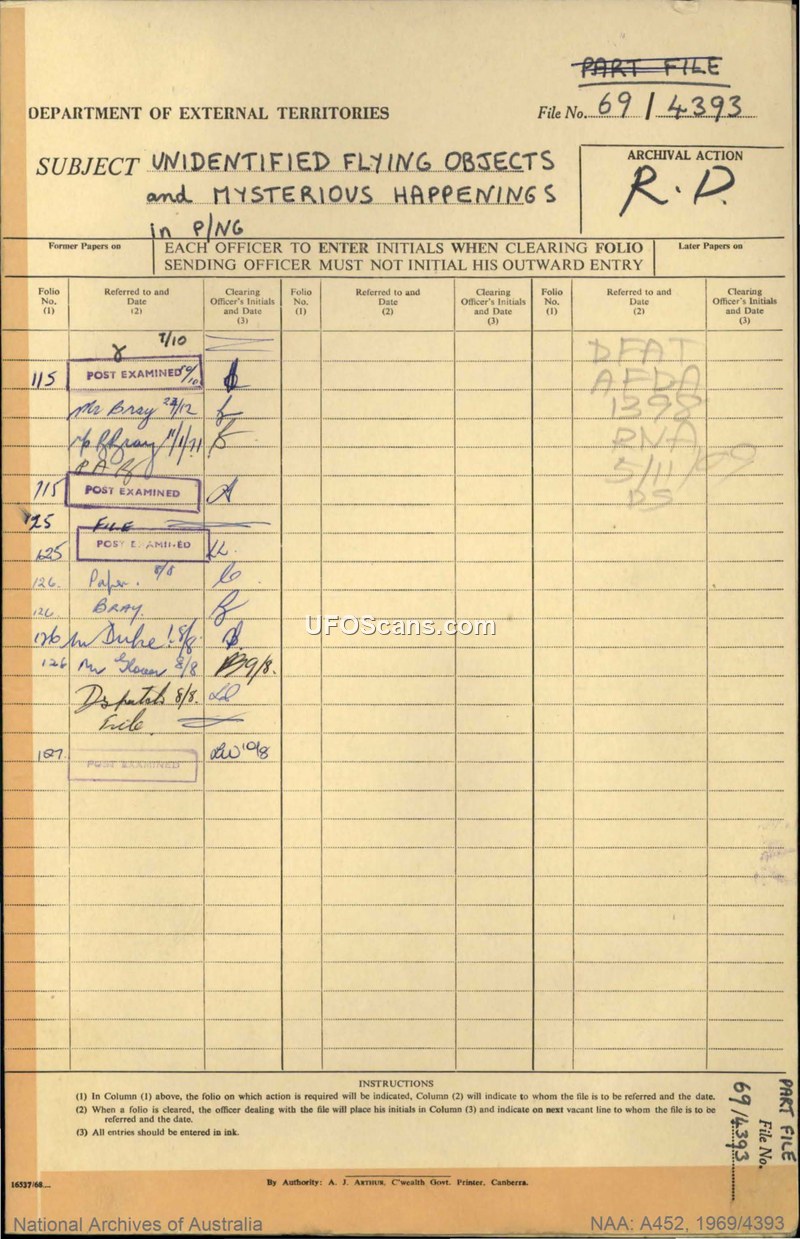 PART FILE
DEPARTMENT OF EXTERNAL TERRITORIES
File No. 69 / 4393
SUBJECT UNIDENTIFIED FLYING OBJECTS
and MYSTERIOUS HAPPENINGS
in P/NG
ARCHIVAL ACTION
R.D.
Former Papers on
EACH OFFICER TO ENTER INITIALS WHEN CLEARING FOLIO
SENDING OFFICER MUST NOT INITIAL HIS OUTWARD ENTRY
Later Papers on
Folio No. (1) Referred to and Date (2) Clearing Officer's Initials and Date (3) Folio No. (1) Referred to and Date (2) Clearing Officer's Initials and Date (3) Folio No. (1) Referred to and Date (2) Clearing Officer's Initials and Date (3)
7/10
115 POST EXAMINED
Mr Bray 23/12
11/1/71
115 POST EXAMINED
125 FILE
125 POST EXAMINED
126. Paper. 8/8
126 BRAY.
126 Mr Duke 8/8
126 Mr 8/8 9/8.
Dspatch 8/8.
File
127 POST EXAMINED 10/8
DFAT
AFDA
1398
RNA
5/11/09
DS
UFOScans.com
INSTRUCTIONS
(1) In Column (1) above, the folio on which action is required will be indicated, Column (2) will indicate to whom the file is to be referred and the date.
(2) When a folio is cleared, the officer dealing with the file will place his initials in Column (3) and indicate on next vacant line to whom the file is to be
referred and the date.
(3) All entries should be entered in ink.
PART FILE
File No.
69/4393
16537/68
By Authority: A. J. ARTHUR, C'wealth Govt. Printer, Canberra.
National Archives of Australia
NAA: A452, 1969/4393